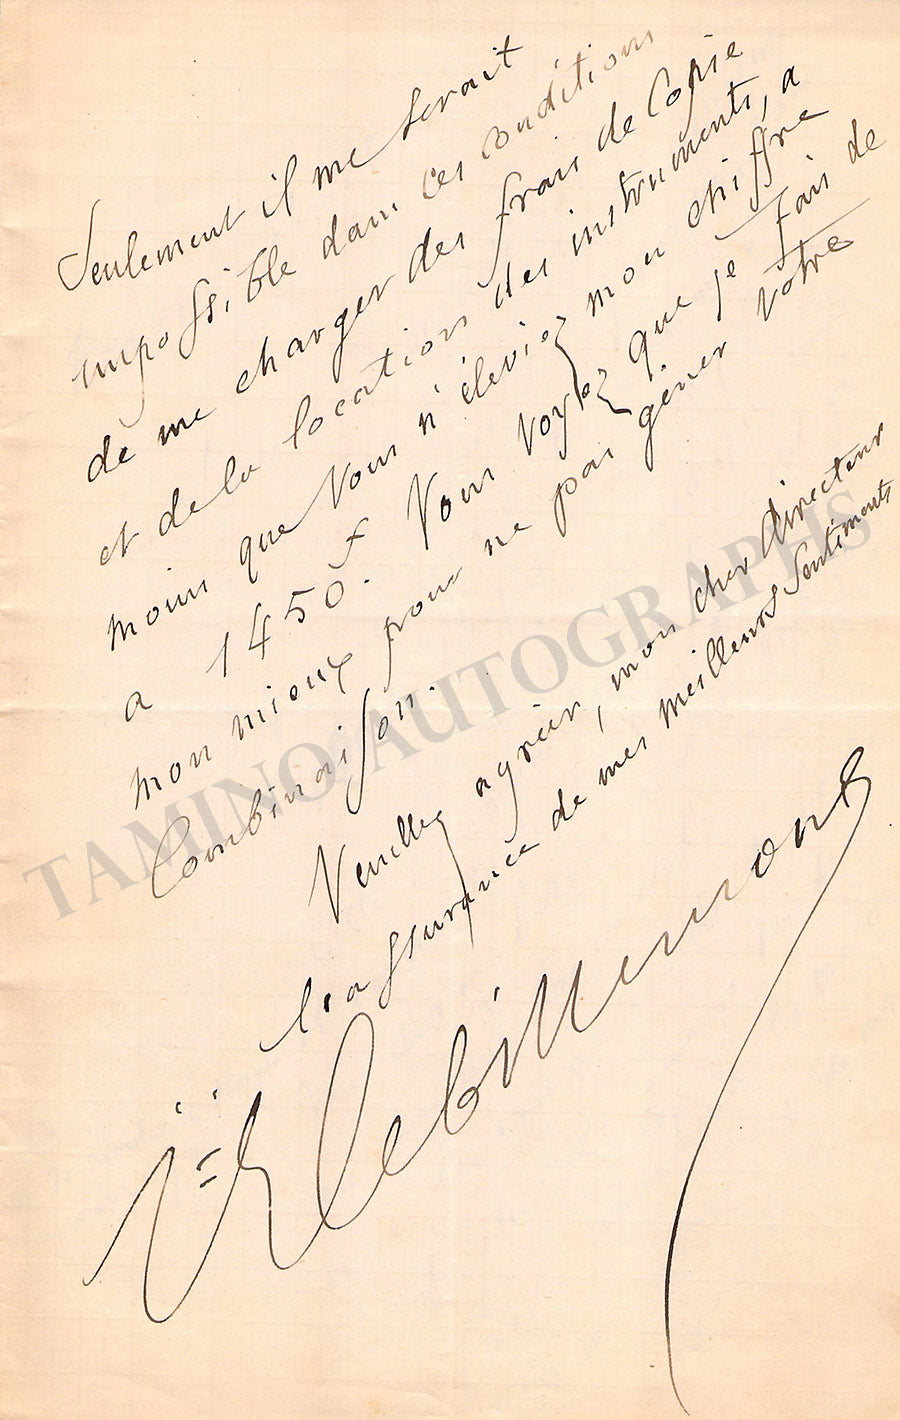 Seulement il me serait
impossible dans ces conditions
de me charger des frais de Copie
et de la location des instruments, a
moins que Vous n'éleviez mon chiffre
a 1450 f. Vous voyez que je fais de
mon mieux pour ne pas gêner votre
Combinaison.
Veuillez agréer, mon cher directeur
l'assurance de mes meilleurs sentiments
Villebillemont
TAMINO AUTOGRAPHS